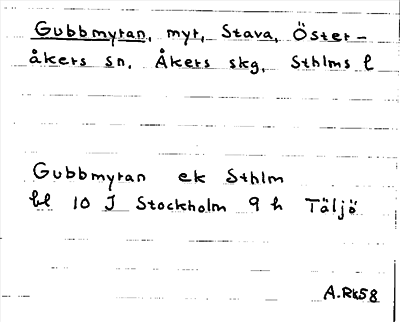 Gubbmyran, myr, Stava, Öster-
åkers sn, Åkers skg, Sthlms l
Gubbmyran ek Sthlm
bl 10 I Stockholm 9 h Täljö
A.Rk58